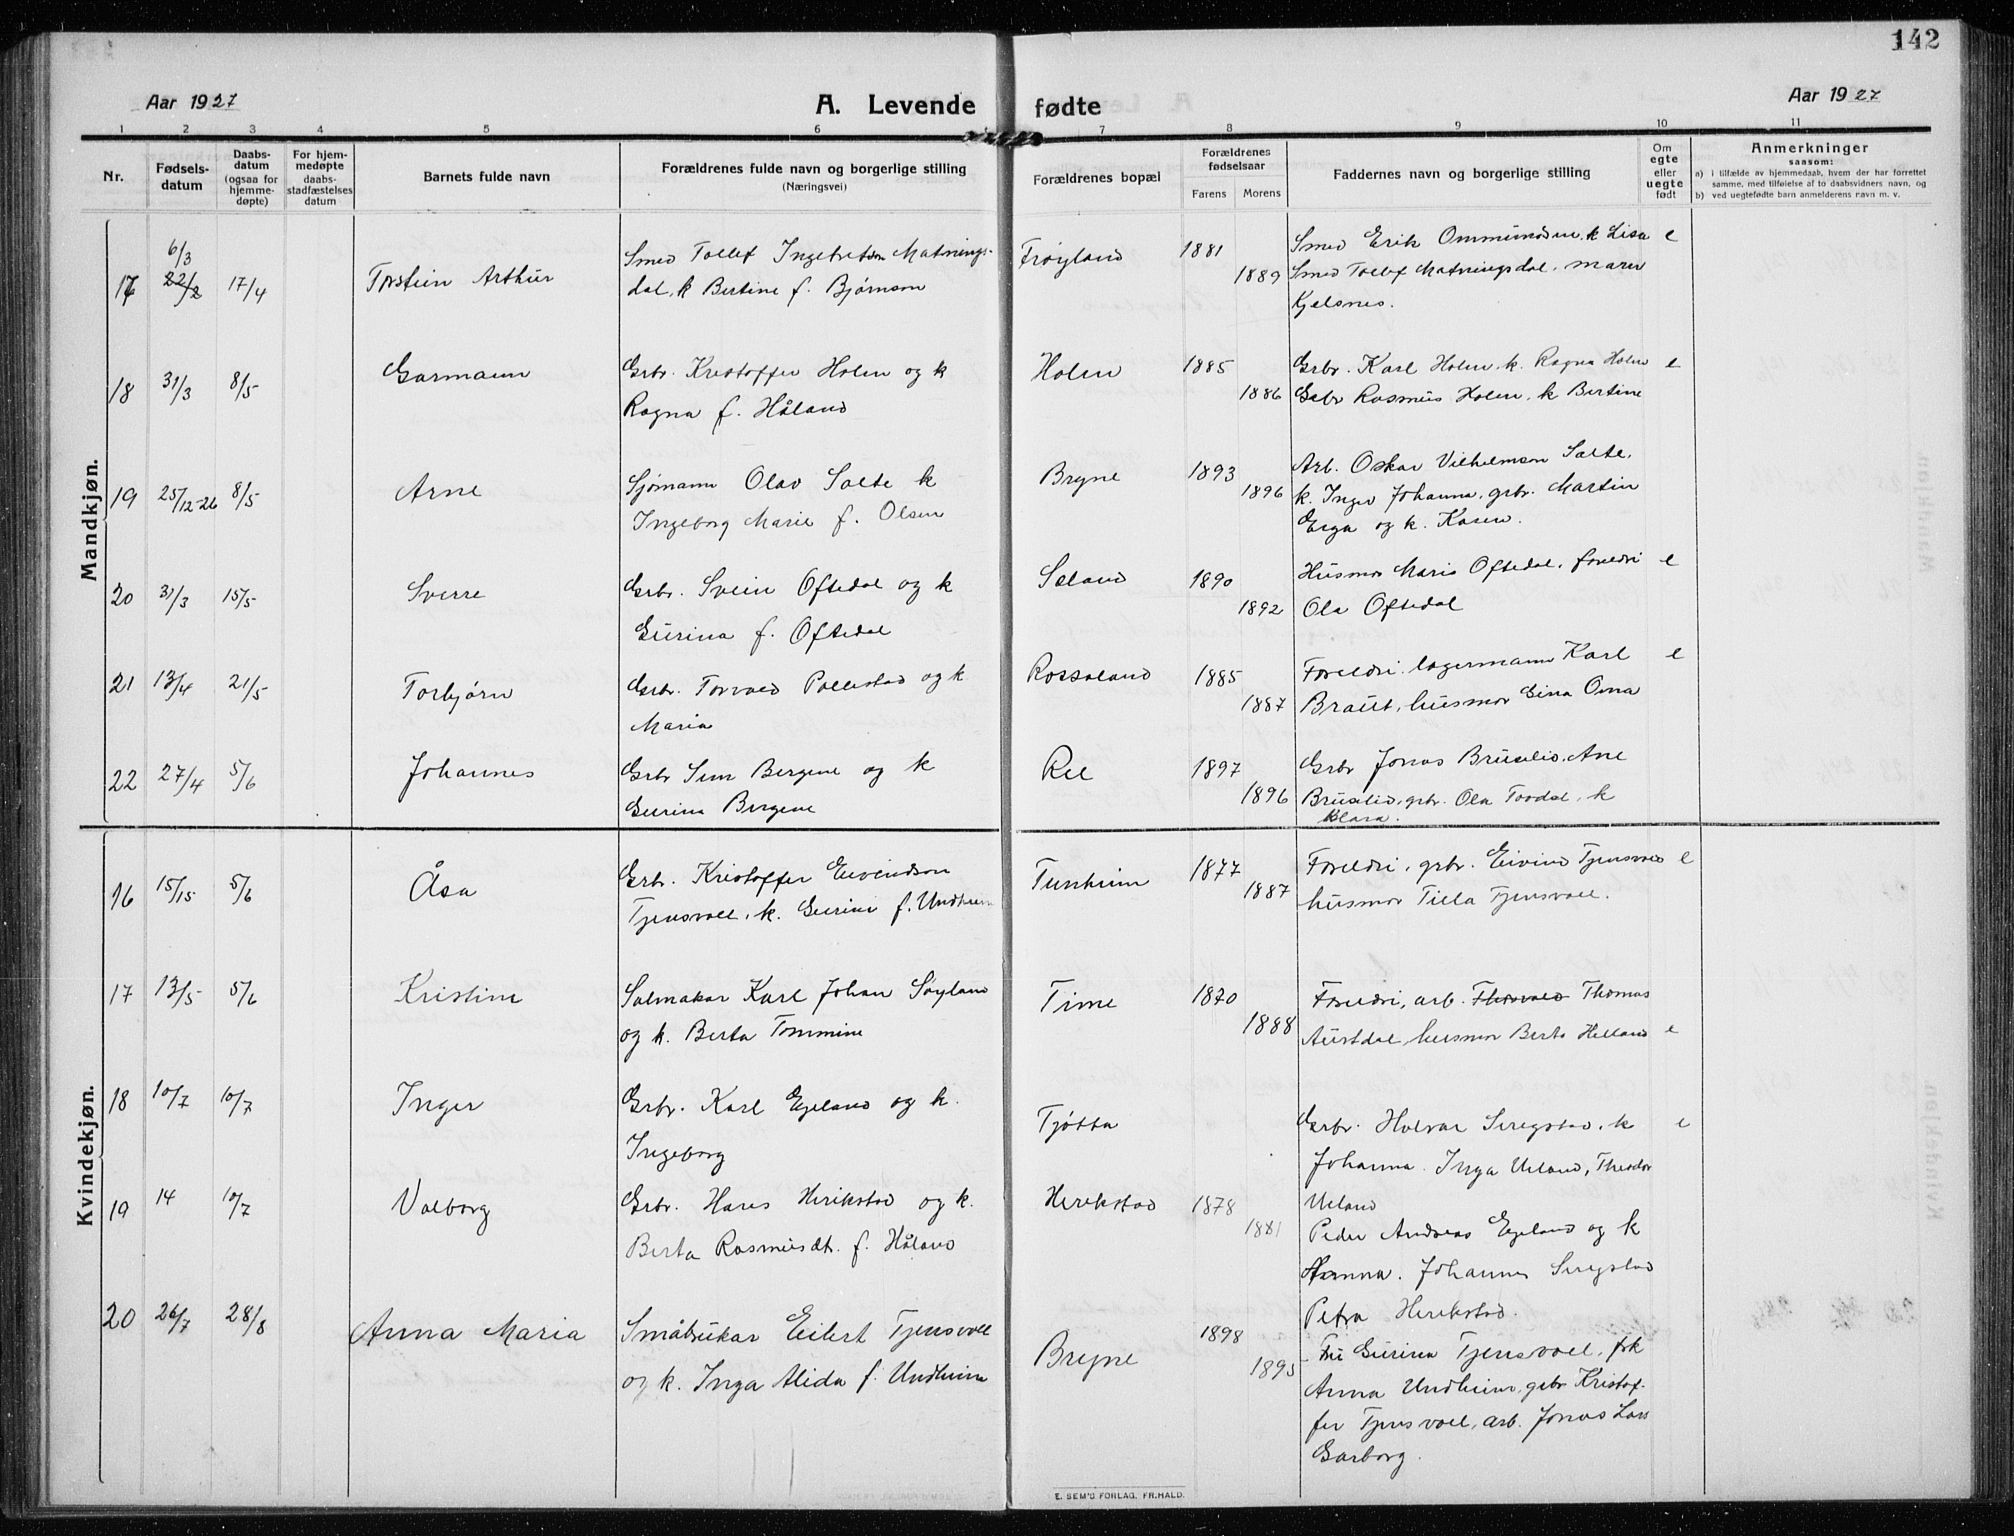 142
Aar 1927
A. Levende fødte
Aar 1927
1 2 3 4 5 6 7 8 9 10 11
Nr.
Fødsels-
datum
Daabs-
datum
(ogsaa for
hjemme-
døpte)
For hjem-
medøpte
daabs-
stadfæstelses
datum
Barnets fulde navn
Forældrenes fulde navn og borgerlige stilling
(Næringsvei)
Forældrenes bopæl
Forældrenes
fødselsaar
Farens Morens
Faddernes navn og borgerlige stilling
Om
egte
eller
uegte
født
Anmerkninger
saasom:
a) i tilfælde av hjemmedaab, hvem der har forrettet
samme, med tilføielse af to daabsvidners navn, og
b) ved uegtefødte barn anmelderens navn m. v.
Mandkjøn.
6/3
17 22/2 17/4 Torstein Arthur
Smed Tollef Ingebretsen Matnings-
dal, k Bertine f. Bjørnson
Frøyland 1881 1889
Smed Erik Ommundsen, k Lisa e
Smed Tollef Matningsdal, maren
Kjelsnes.
18 31/3 8/5 Garmann
Grbr. Kristoffer Holen og k
Ragna f. Håland
Holen 1885 1886
Grbr. Karl Holen, k. Ragna Holen e
Grbr Rasmus Holen, k Bertine
19 25/12-26 8/5 Arne
Sjømann Olav Salte k
Ingeborg Marie f. Olsen
Bryne 1893 1896
Arb. Oskar Vilhelmsen Salte,
k. Inger Johanna, grbr. Martin
Erga og k. Karen.
20 31/3 15/5 Sverre
Grbr. Svein Oftedal og k
Gurina f. Oftedal
Sæland 1890 1892
Husmor Maria Oftedal, foreldri e
Ola Oftedal
21 13/4 21/5 Torbjørn
Grbr. Torvald Pollestad og k
Maria
Rossaland 1885 1887
Foreldri, lagermann Karl e
Braut, husmor Gina Oma
22 27/4 5/6 Johannes
Grbr Sem Bergene og k
Gurina Bergene
Ree 1897 1896
Grbr Jonas Bruslid, Ane
Bruslid, grbr. Ola Tordal, k
Klara.
Kvindekjøn.
16 15/15 5/6 Åsa
Grbr. Kristoffer Eivindson
Tjensvoll, k. Gurine f. Undheim
Tunheim 1877 1887
Foreldri, grbr. Eivind Tjensvold e
husmor Tilla Tjensvoll.
17 13/5 5/6 Kristine
Salmakar Karl Johan Søyland
og k. Berta Tommine
Time 1870 1888
Foreldri, arb. Thorvald Thomas
Austdal, husmor Berta Helland e
18 10/7 10/7 Inger
Grbr. Karl Egeland og k.
Ingeborg
Tjøtta
Grbr. Halvar Seregstad, k e
Johanna. Inga Ueland, Theodor
Ueland
19 14 10/7 Valborg
Grbr. Hans Herikstad og k.
Berta Rasmusdt. f. Håland
Herikstad 1878 1881
Peder Andreas Egeland og k
Hanna. Johannes Seregstad
Petra Herikstad.
20 26/7 28/8 Anna Maria
Småbrukar Eilert Tjensvoll
og k. Inga Alida f. Undheim
Bryne 1898 1895
Fru Gurina Tjensvoll, frk
Anna Undheim, grbr Kristof-
fer Tjensvoll, arb. Jonas Lars
Garborg.
E. SEM'S FORLAG, FR.HALD.